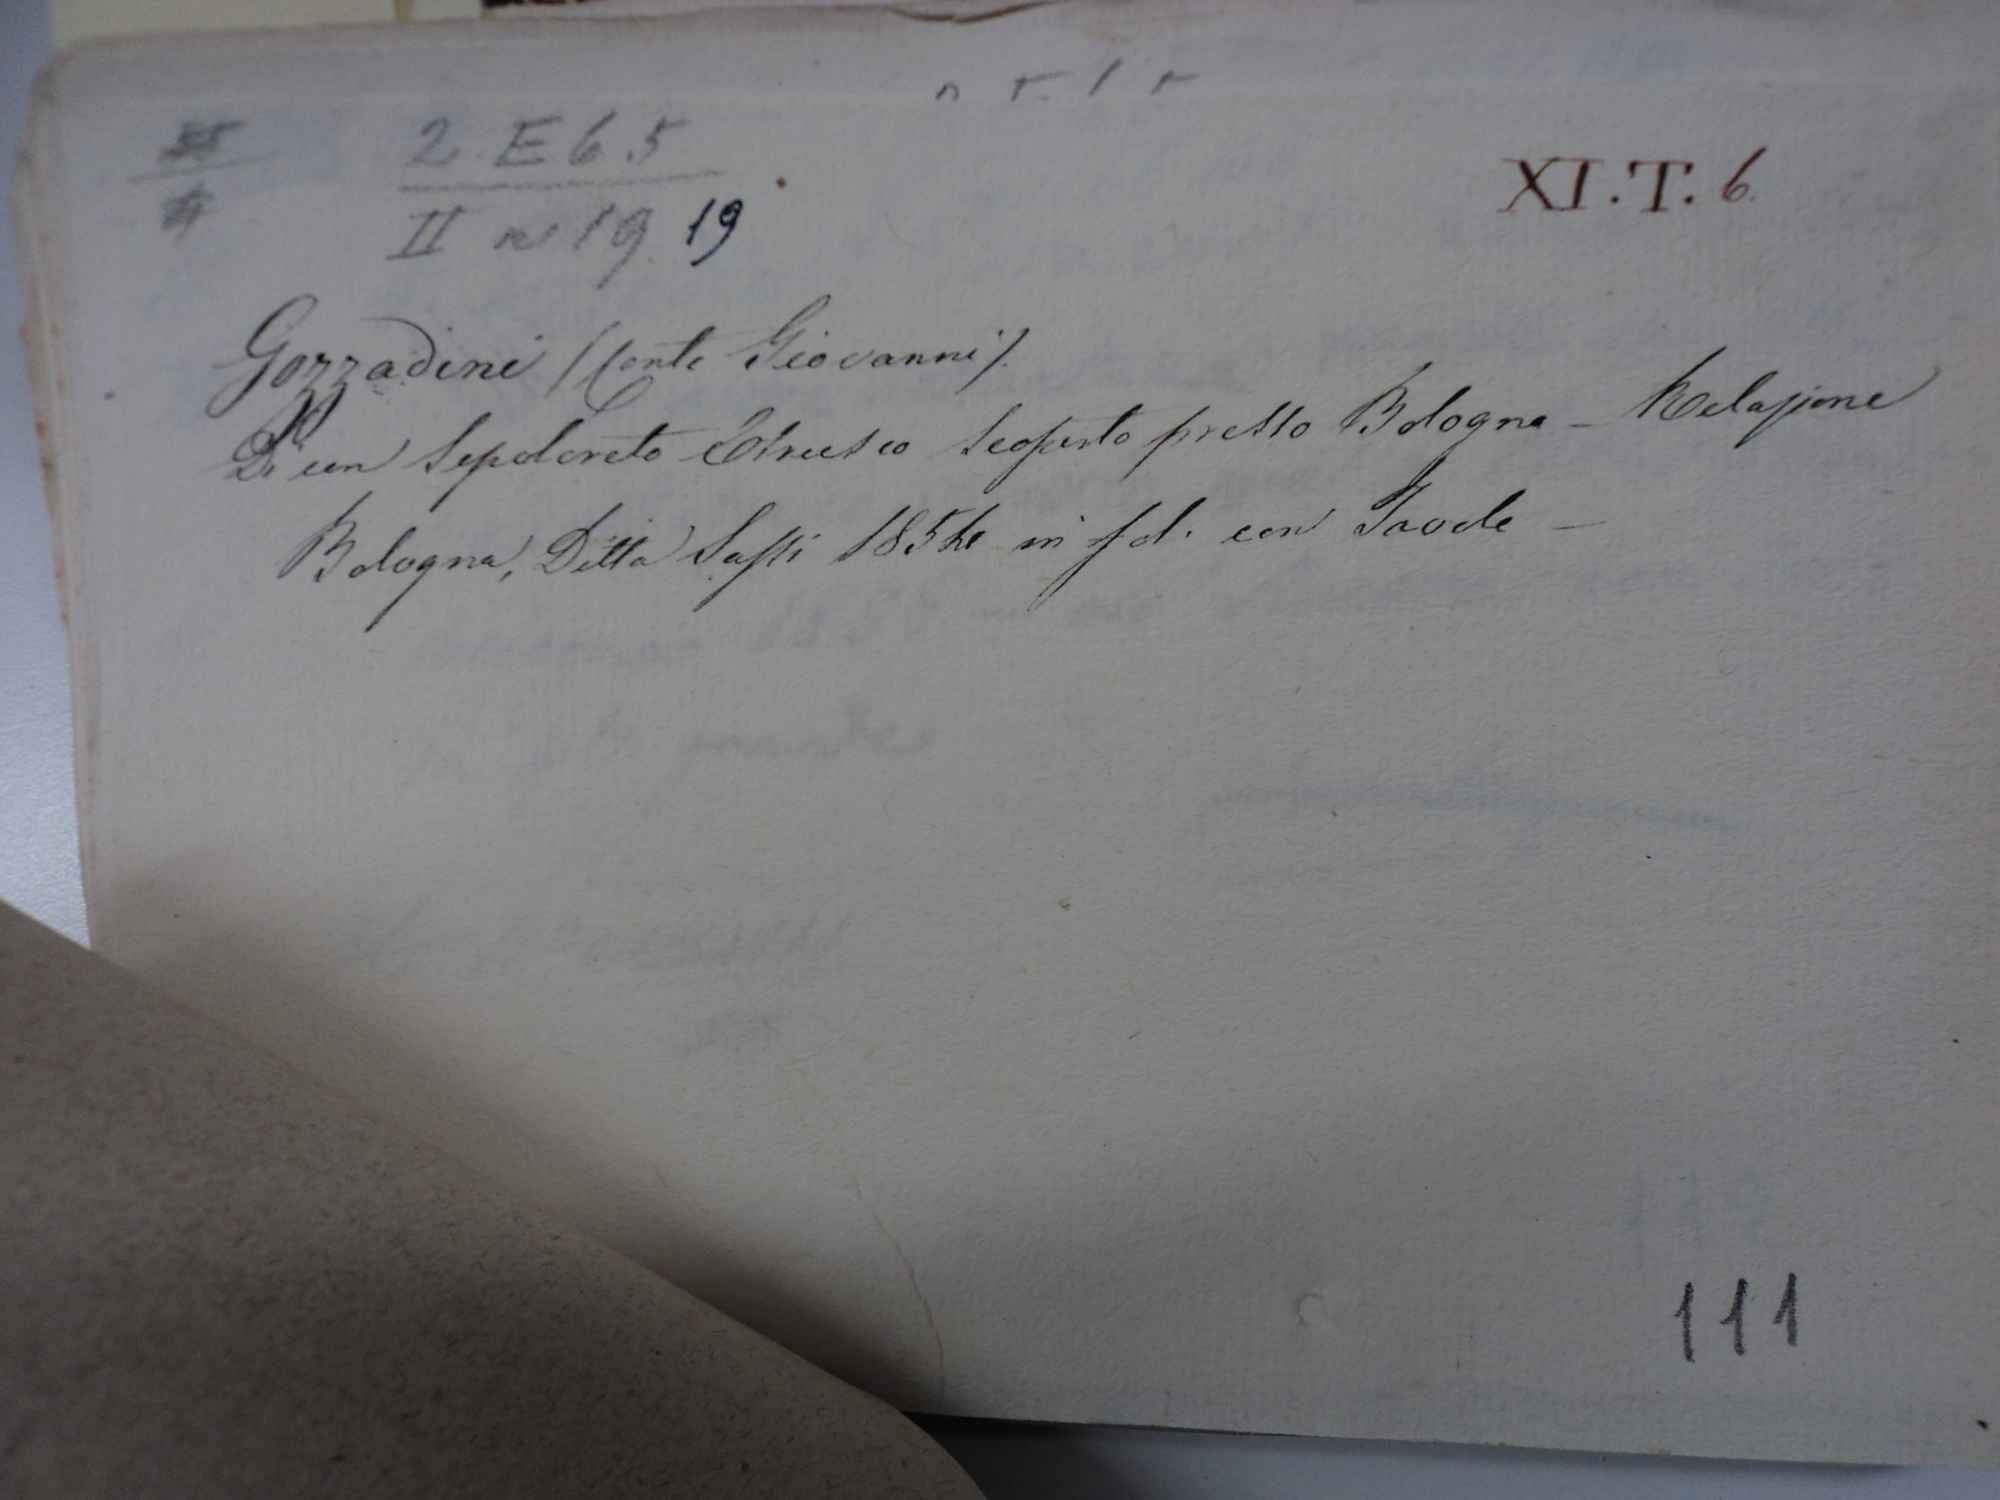 2. E 6. 5
II n 19. 19
XI. T. 6.
Gozzadini (Conte Giovanni).
Di un Sepolcreto Etrusco scoperto presso Bologna - Relazione
Bologna, Ditta Sassi 1854 in fol. con Tavole -
111